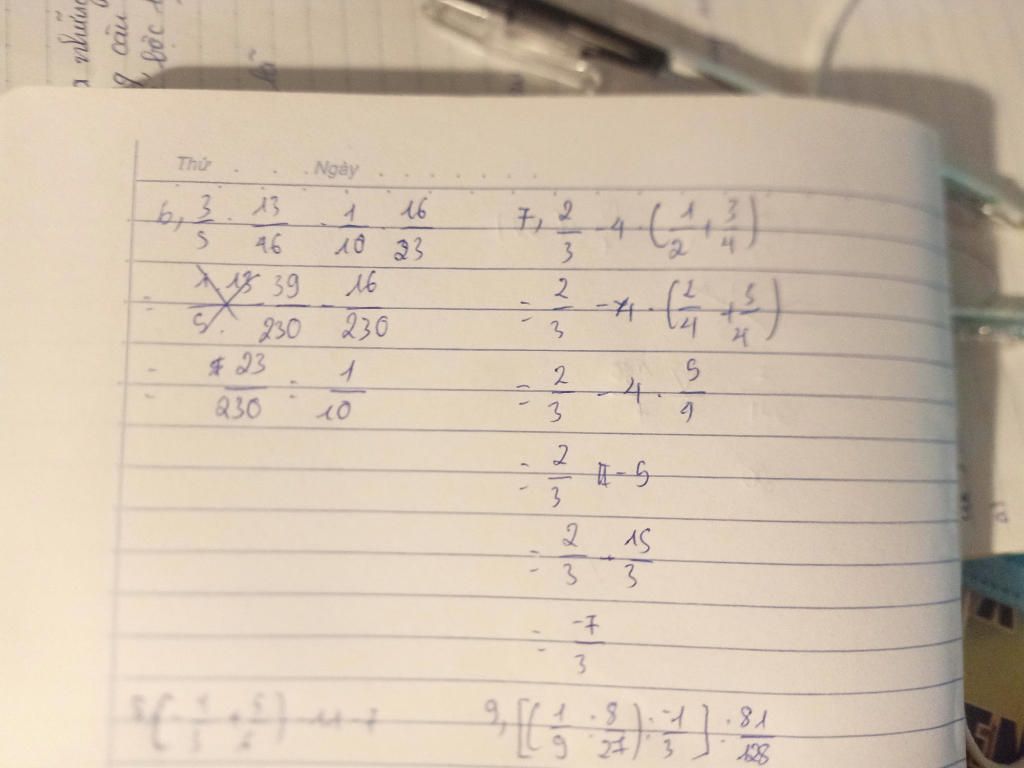 Thứ . . . Ngày . . . . . . .
6, 3/5 · 13/46 - 1/10 · 16/23
= 39/230 - 16/230
= 23/230 = 1/10
7, 2/3 - 4 · (1/2 + 3/4)
= 2/3 - 4 · (2/4 + 3/4)
= 2/3 - 4 · 5/9
= 2/3 - 5
= 2/3 - 15/3
= -7/3
9, [(1/9 : 8/27) : -1/3] : 81/128